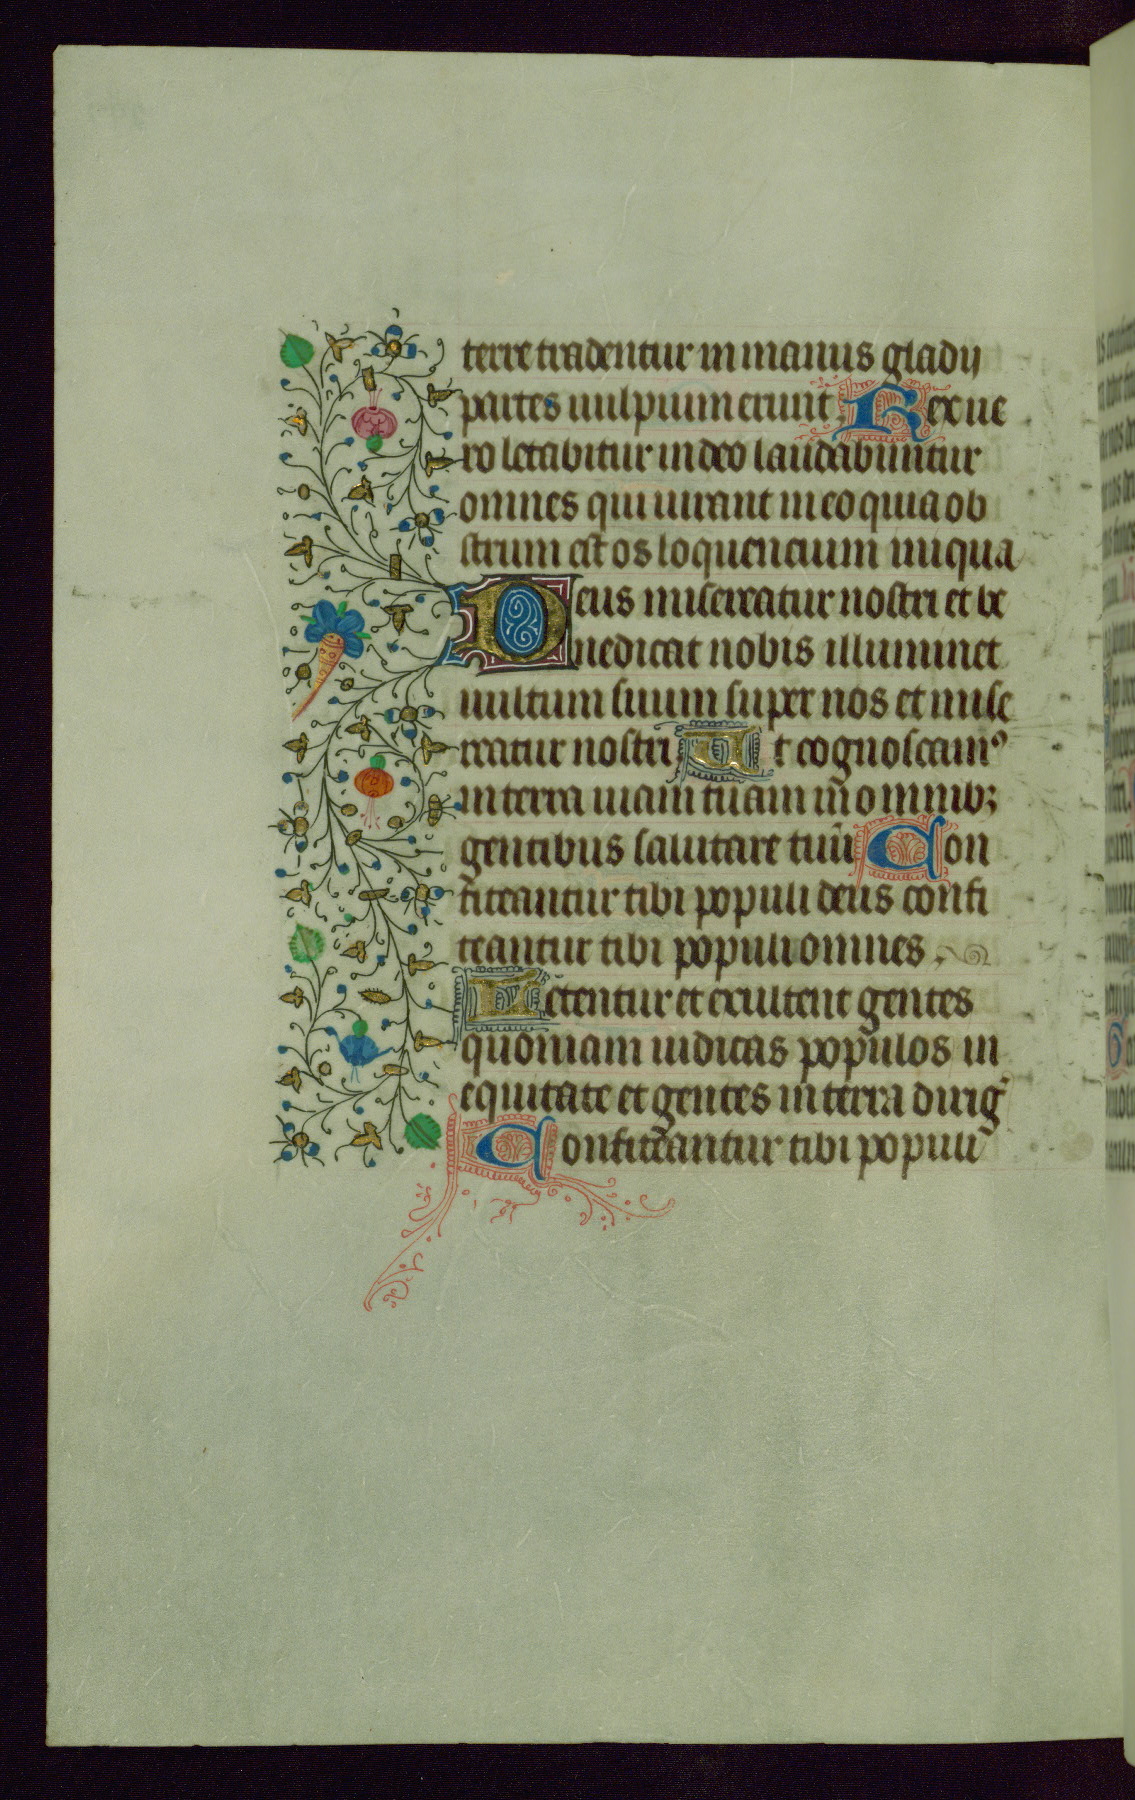 terre tradentur in manus gladij
partes uulpium erunt. Rex ue
ro letabitur in deo laudabuntur
omnes qui iurant in eo quia ob
strum est os loquencium iniqua
Deus misereatur nostri et be
nedicat nobis illuminet
uultum suum super nos et mise
reatur nostri Ut cognoscamꝰ
in terra uiam tuam in omnibꝫ
gentibus salutare tuū Con
fiteantur tibi populi deus confi
teantur tibi populi omnes.
Letentur et exultent gentes
quoniam iudicas populos in
equitate et gentes in terra dirigꝭ
Confiteantur tibi populi